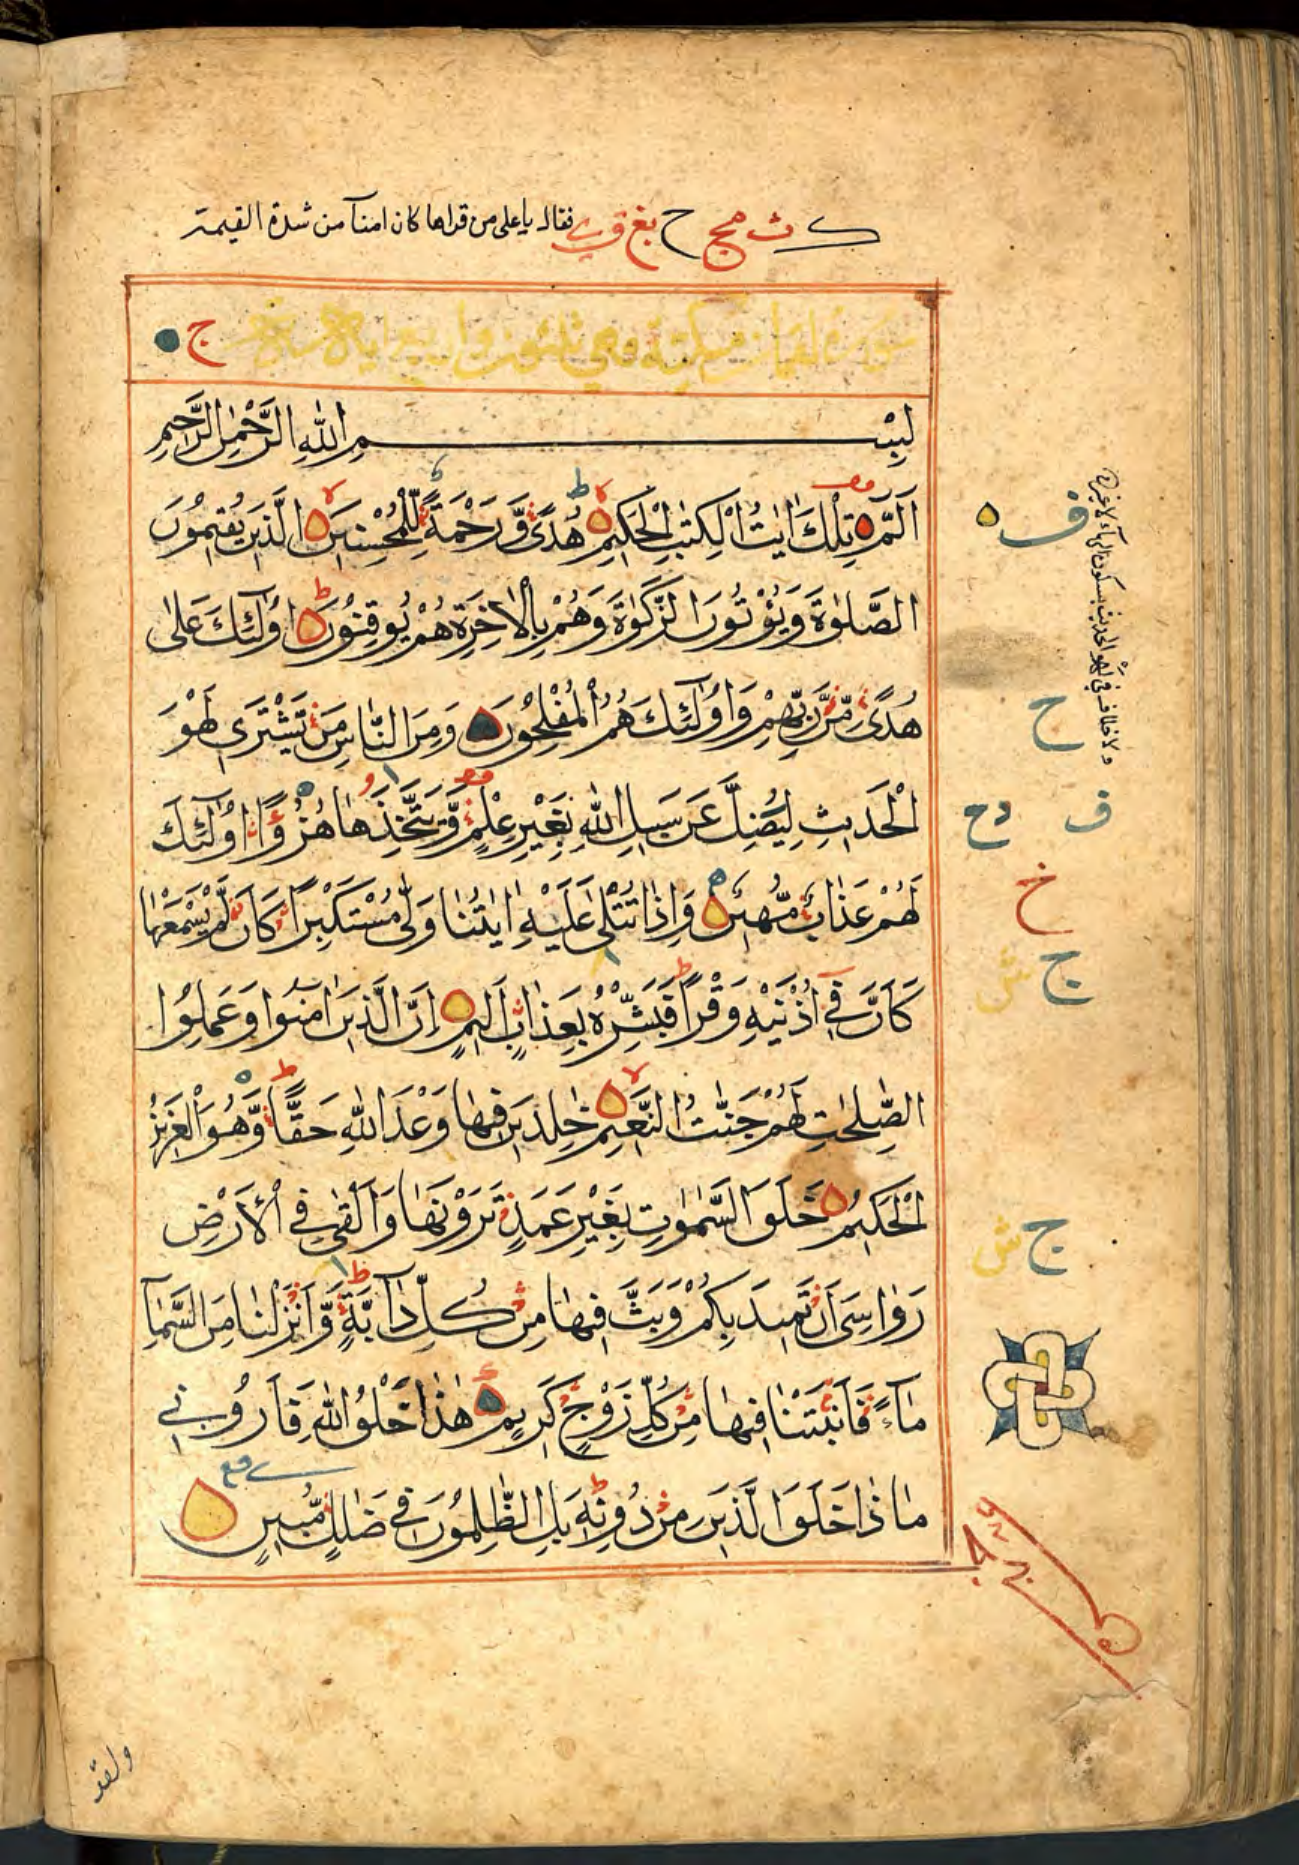 ك ث مج ح بغ ق ي فقال ياعلى من قراها كان امنا من شدة القيمة
سورة لقمان مكية وهي ثلثون واربع اية
ج
بِسْمِ اللهِ الرَّحْمٰنِ الرَّحِيْمِ
الٓمّٓ تِلْكَ اٰيٰتُ الْكِتٰبِ الْحَكِيْمِ هُدًى وَّرَحْمَةً لِّلْمُحْسِنِيْنَ الَّذِيْنَ يُقِيْمُوْنَ
الصَّلٰوةَ وَيُؤْتُوْنَ الزَّكٰوةَ وَهُمْ بِالْاٰخِرَةِ هُمْ يُوْقِنُوْنَ اُولٰٓئِكَ عَلٰى
هُدًى مِّنْ رَّبِّهِمْ وَاُولٰٓئِكَ هُمُ الْمُفْلِحُوْنَ وَمِنَ النَّاسِ مَنْ يَّشْتَرِيْ لَهْوَ
الْحَدِيْثِ لِيُضِلَّ عَنْ سَبِيْلِ اللهِ بِغَيْرِ عِلْمٍ وَّيَتَّخِذَهَا هُزُوًا اُولٰٓئِكَ
لَهُمْ عَذَابٌ مُّهِيْنٌ وَاِذَا تُتْلٰى عَلَيْهِ اٰيٰتُنَا وَلّٰى مُسْتَكْبِرًا كَاَنْ لَّمْ يَسْمَعْهَا
كَاَنَّ فِيْٓ اُذُنَيْهِ وَقْرًا فَبَشِّرْهُ بِعَذَابٍ اَلِيْمٍ اِنَّ الَّذِيْنَ اٰمَنُوْا وَعَمِلُوا
الصّٰلِحٰتِ لَهُمْ جَنّٰتُ النَّعِيْمِ خٰلِدِيْنَ فِيْهَا وَعْدَ اللهِ حَقًّا وَهُوَ الْعَزِيْزُ
الْحَكِيْمُ خَلَقَ السَّمٰوٰتِ بِغَيْرِ عَمَدٍ تَرَوْنَهَا وَاَلْقٰى فِي الْاَرْضِ
رَوَاسِيَ اَنْ تَمِيْدَ بِكُمْ وَبَثَّ فِيْهَا مِنْ كُلِّ دَآبَّةٍ وَّاَنْزَلْنَا مِنَ السَّمَآءِ
مَآءً فَاَنْبَتْنَا فِيْهَا مِنْ كُلِّ زَوْجٍ كَرِيْمٍ هٰذَا خَلْقُ اللهِ فَاَرُوْنِيْ
مَاذَا خَلَقَ الَّذِيْنَ مِنْ دُوْنِهٖ بَلِ الظّٰلِمُوْنَ فِيْ ضَلٰلٍ مُّبِيْنٍ
ف
ولا خلاف في لهو الحديث بسكون الهاء
ح
ف دح
خ
ج ش
ج ش
ولقد